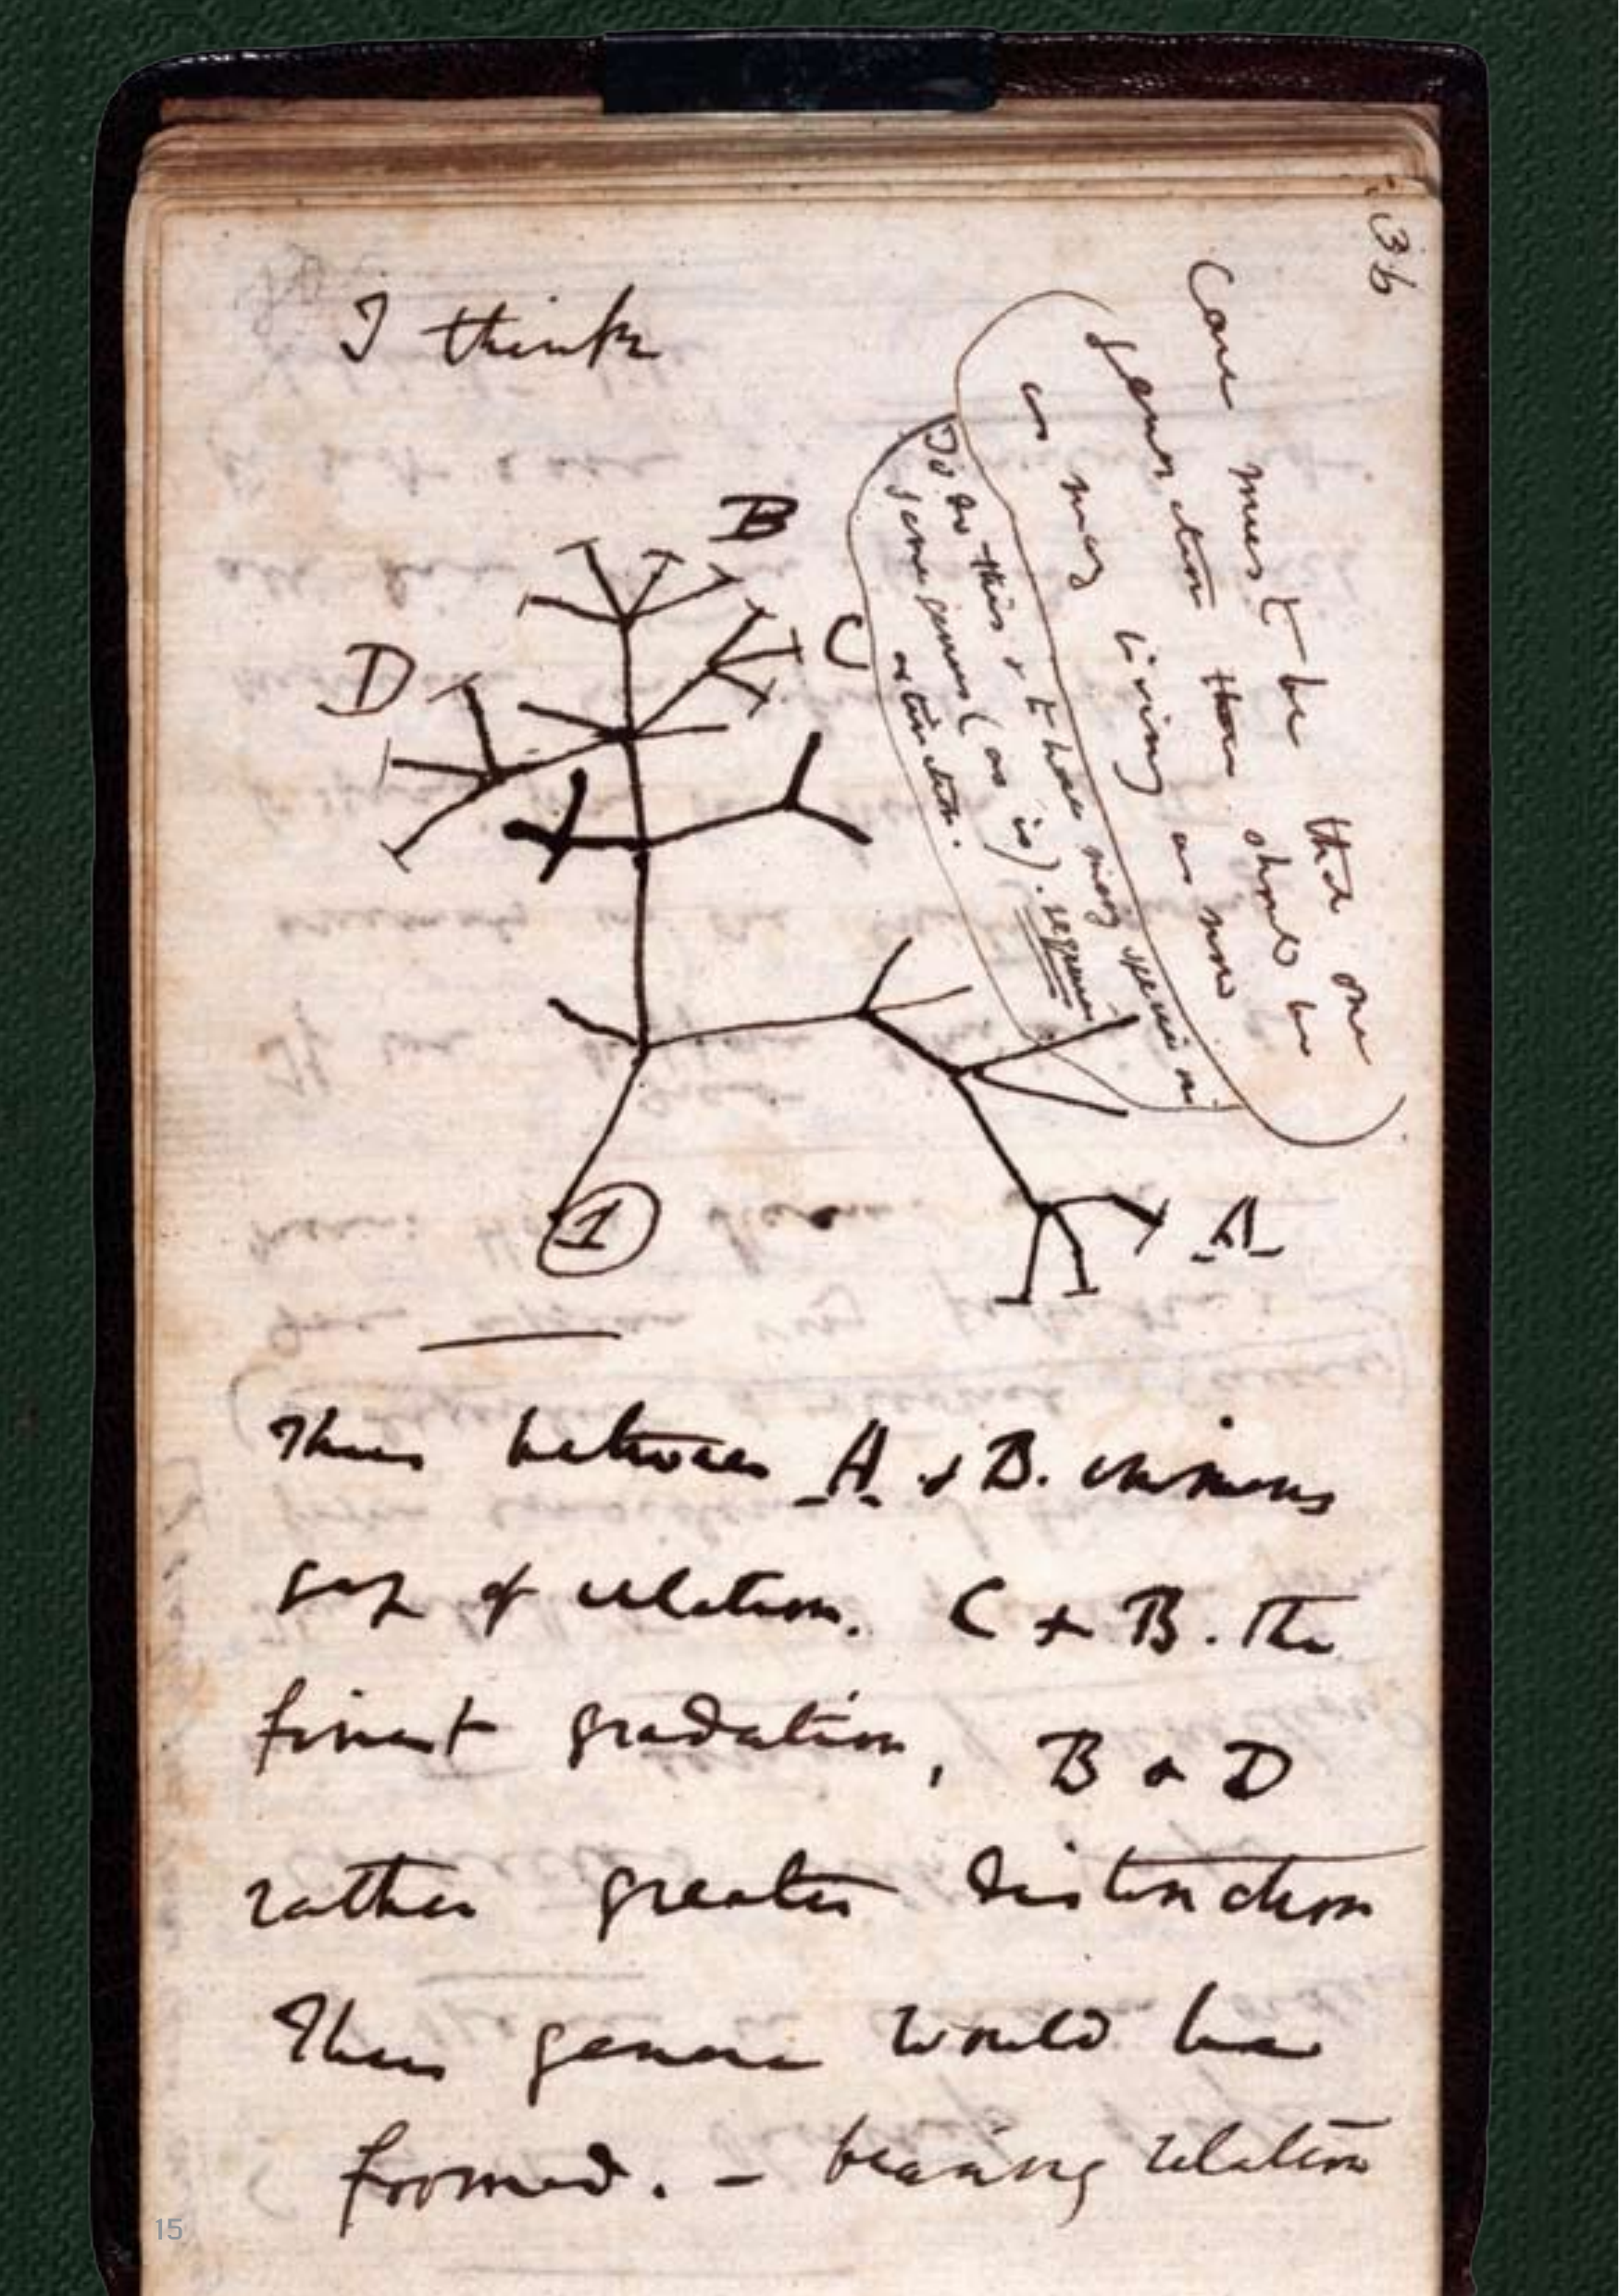 36
I think
Case must be that one
generation then should be
as many living as now
To do this & to have many species in
same genus (as is). requires
extinction.
B
C
D
1
A
Thus between A & B. immens
gap of relation. C & B. the
finest gradation, B & D
rather greater distinction
Thus genera would be
formed. — bearing relation
15